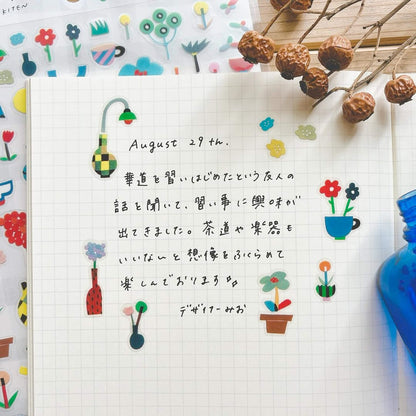 KITEN
August 29th.
華道を習いはじめたという友人の
話を聞いて、習い事に興味が
出てきました。茶道や楽器も
いいないと想像をふくらめて
楽しんでおります♪
デザイナーみお